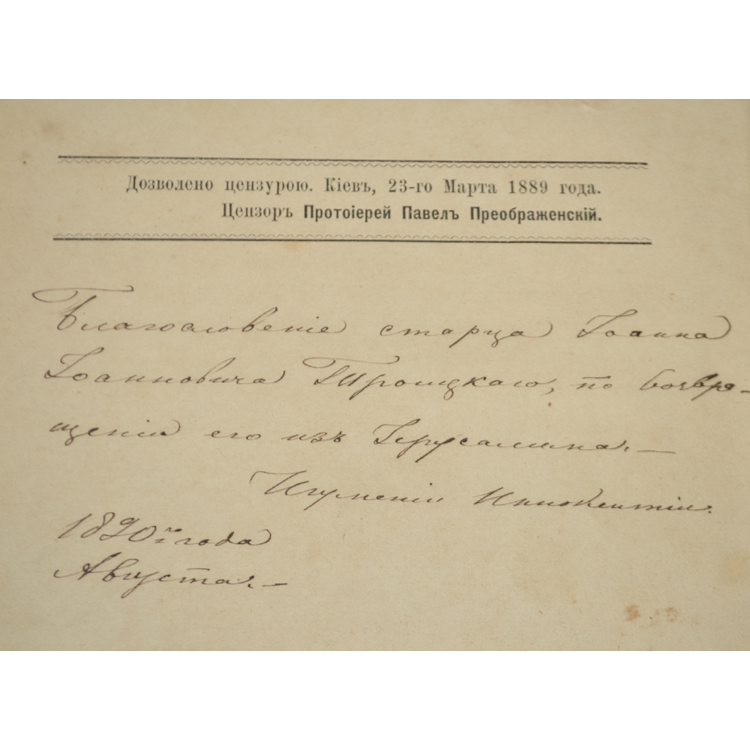 Дозволено цензурою. Кіевъ, 23-го Марта 1889 года.
Цензоръ Протоіерей Павелъ Преображенскій.
Благословеніе старца Іоанна
Іоанновича Троицкаго, по возвра-
щеніи его изъ Іерусалима.—
Игуменіи Иннокентіи.
1890го года
Августа.—